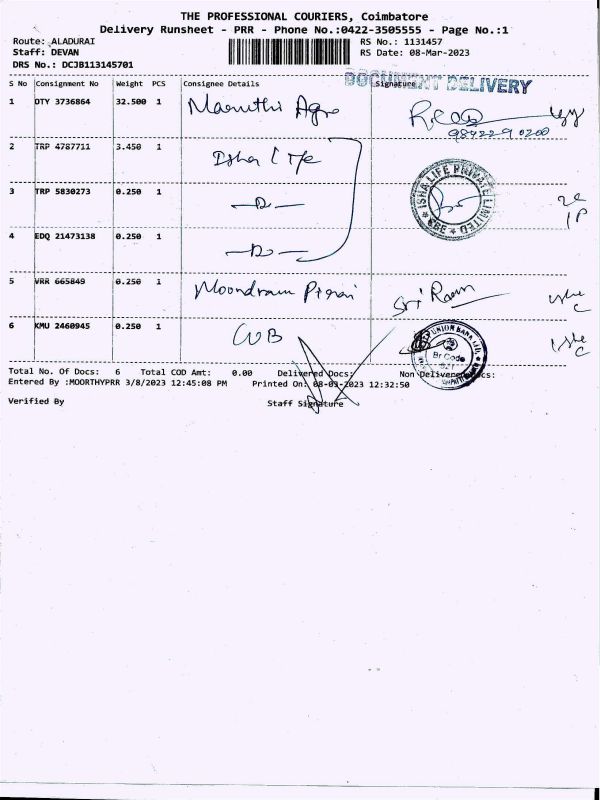 THE PROFESSIONAL COURIERS, Coimbatore
Delivery Runsheet - PRR - Phone No.:0422-3505555 - Page No.:1
Route: ALADURAI
Staff: DEVAN
DRS No.: DCJB113145701
RS No.: 1131457
RS Date: 08-Mar-2023
DOCUMENT DELIVERY
S No Consignment No Weight PCS Consignee Details Signature
1 DTY 3736864 32.500 1 Maruthi Agro
98422 90200
2 TRP 4787711 3.450 1 Isha Life
ISHA LIFE PRIVATE LIMITED
CBE
3 TRP 5830273 0.250 1 —D—
4 EDQ 21473138 0.250 1 —D—
5 VRR 665849 0.250 1 Moondram Pirai Sri Ram
6 KMU 2460945 0.250 1 CUB
UNION BANK LTD.
Br Code
Total No. Of Docs: 6 Total COD Amt: 0.00 Delivered Docs: Non Delivered Docs:
Entered By :MOORTHYPRR 3/8/2023 12:45:08 PM Printed On: 08-03-2023 12:32:50
Verified By Staff Signature